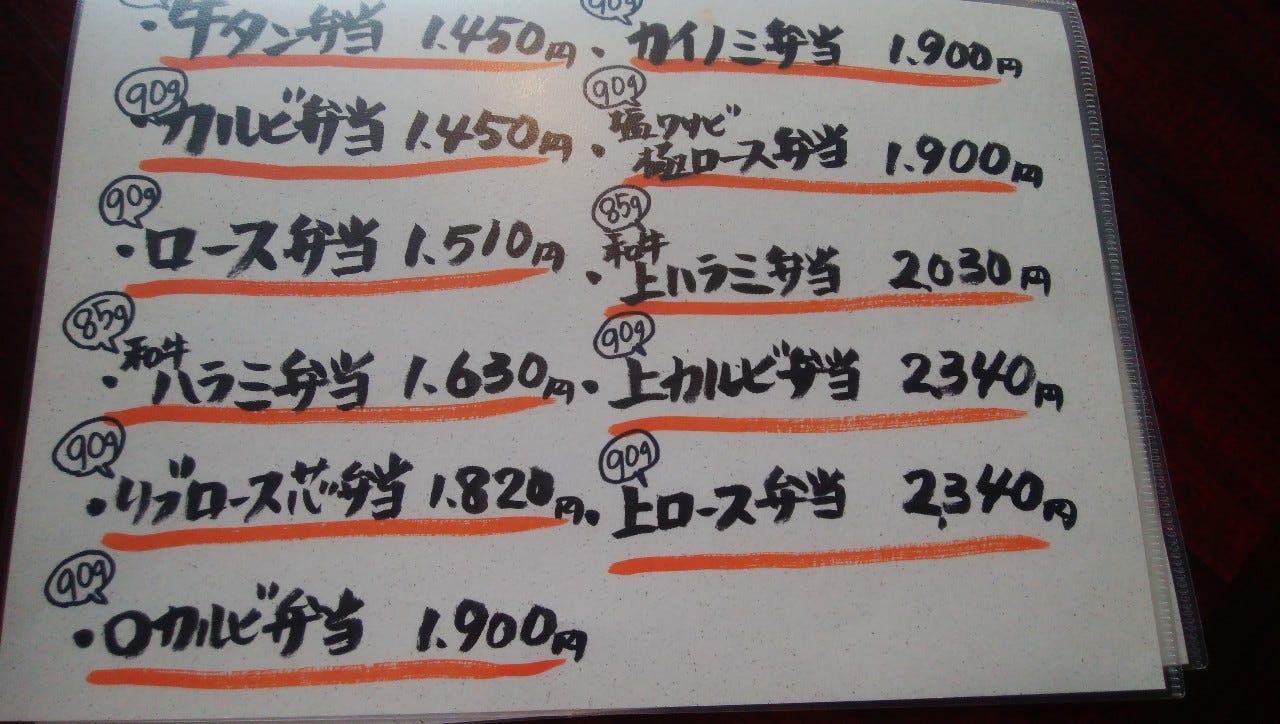 ・牛タン弁当 1.450円
90g
・カルビ弁当 1.450円
90g
・ロース弁当 1.510円
85g
和牛
・ハラミ弁当 1.630円
90g
・リブロース芯弁当 1.820円
90g
・〇カルビ弁当 1.900円
90g
・カイノミ弁当 1.900円
90g
塩ワサビ
・極ロース弁当 1.900円
85g
和牛
・上ハラミ弁当 2.030円
90g
・上カルビ弁当 2.340円
90g
・上ロース弁当 2.340円